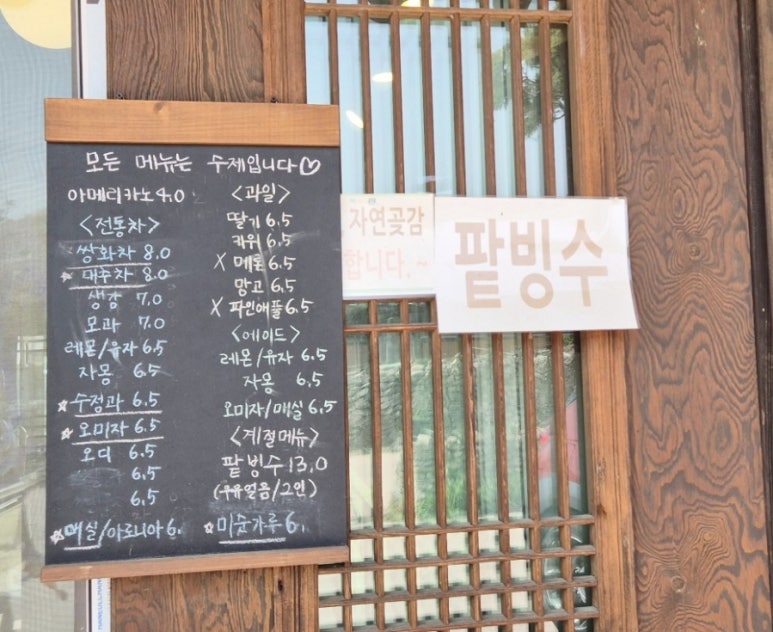 모든 메뉴는 수제입니다♡
아메리카노 4.0
<전통차>
쌍화차 8.0
☆ 대추차 8.0
생강 7.0
모과 7.0
레몬/유자 6.5
자몽 6.5
☆ 수정과 6.5
☆ 오미자 6.5
오디 6.5
6.5
6.5
☆ 매실/아로니아 6.
<과일>
딸기 6.5
키위 6.5
X 메론 6.5
망고 6.5
X 파인애플 6.5
<에이드>
레몬/유자 6.5
자몽 6.5
오미자/매실 6.5
<계절메뉴>
팥빙수 13.0
(우유얼음/2인)
☆ 미숫가루 6.
자연곶감
합니다.~
팥빙수